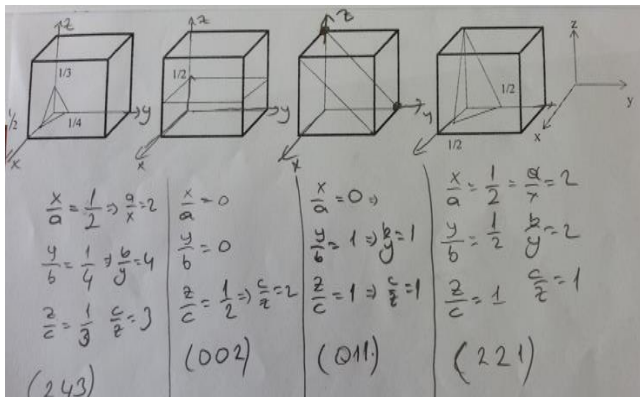 z
1/3
1/4
1/2
y
x
z
1/2
y
x
z
y
x
1/2
1/2
z
y
x
x/a = 1/2 => a/x = 2
y/b = 1/4 => b/y = 4
z/c = 1/3 c/z = 3
(243)
x/a = 0
y/b = 0
z/c = 1/2 => c/z = 2
(002)
x/a = 0 =>
y/b = 1 => b/y = 1
z/c = 1 => c/z = 1
(011)
x/a = 1/2 = a/x = 2
y/b = 1/2 b/y = 2
z/c = 1 c/z = 1
(221)